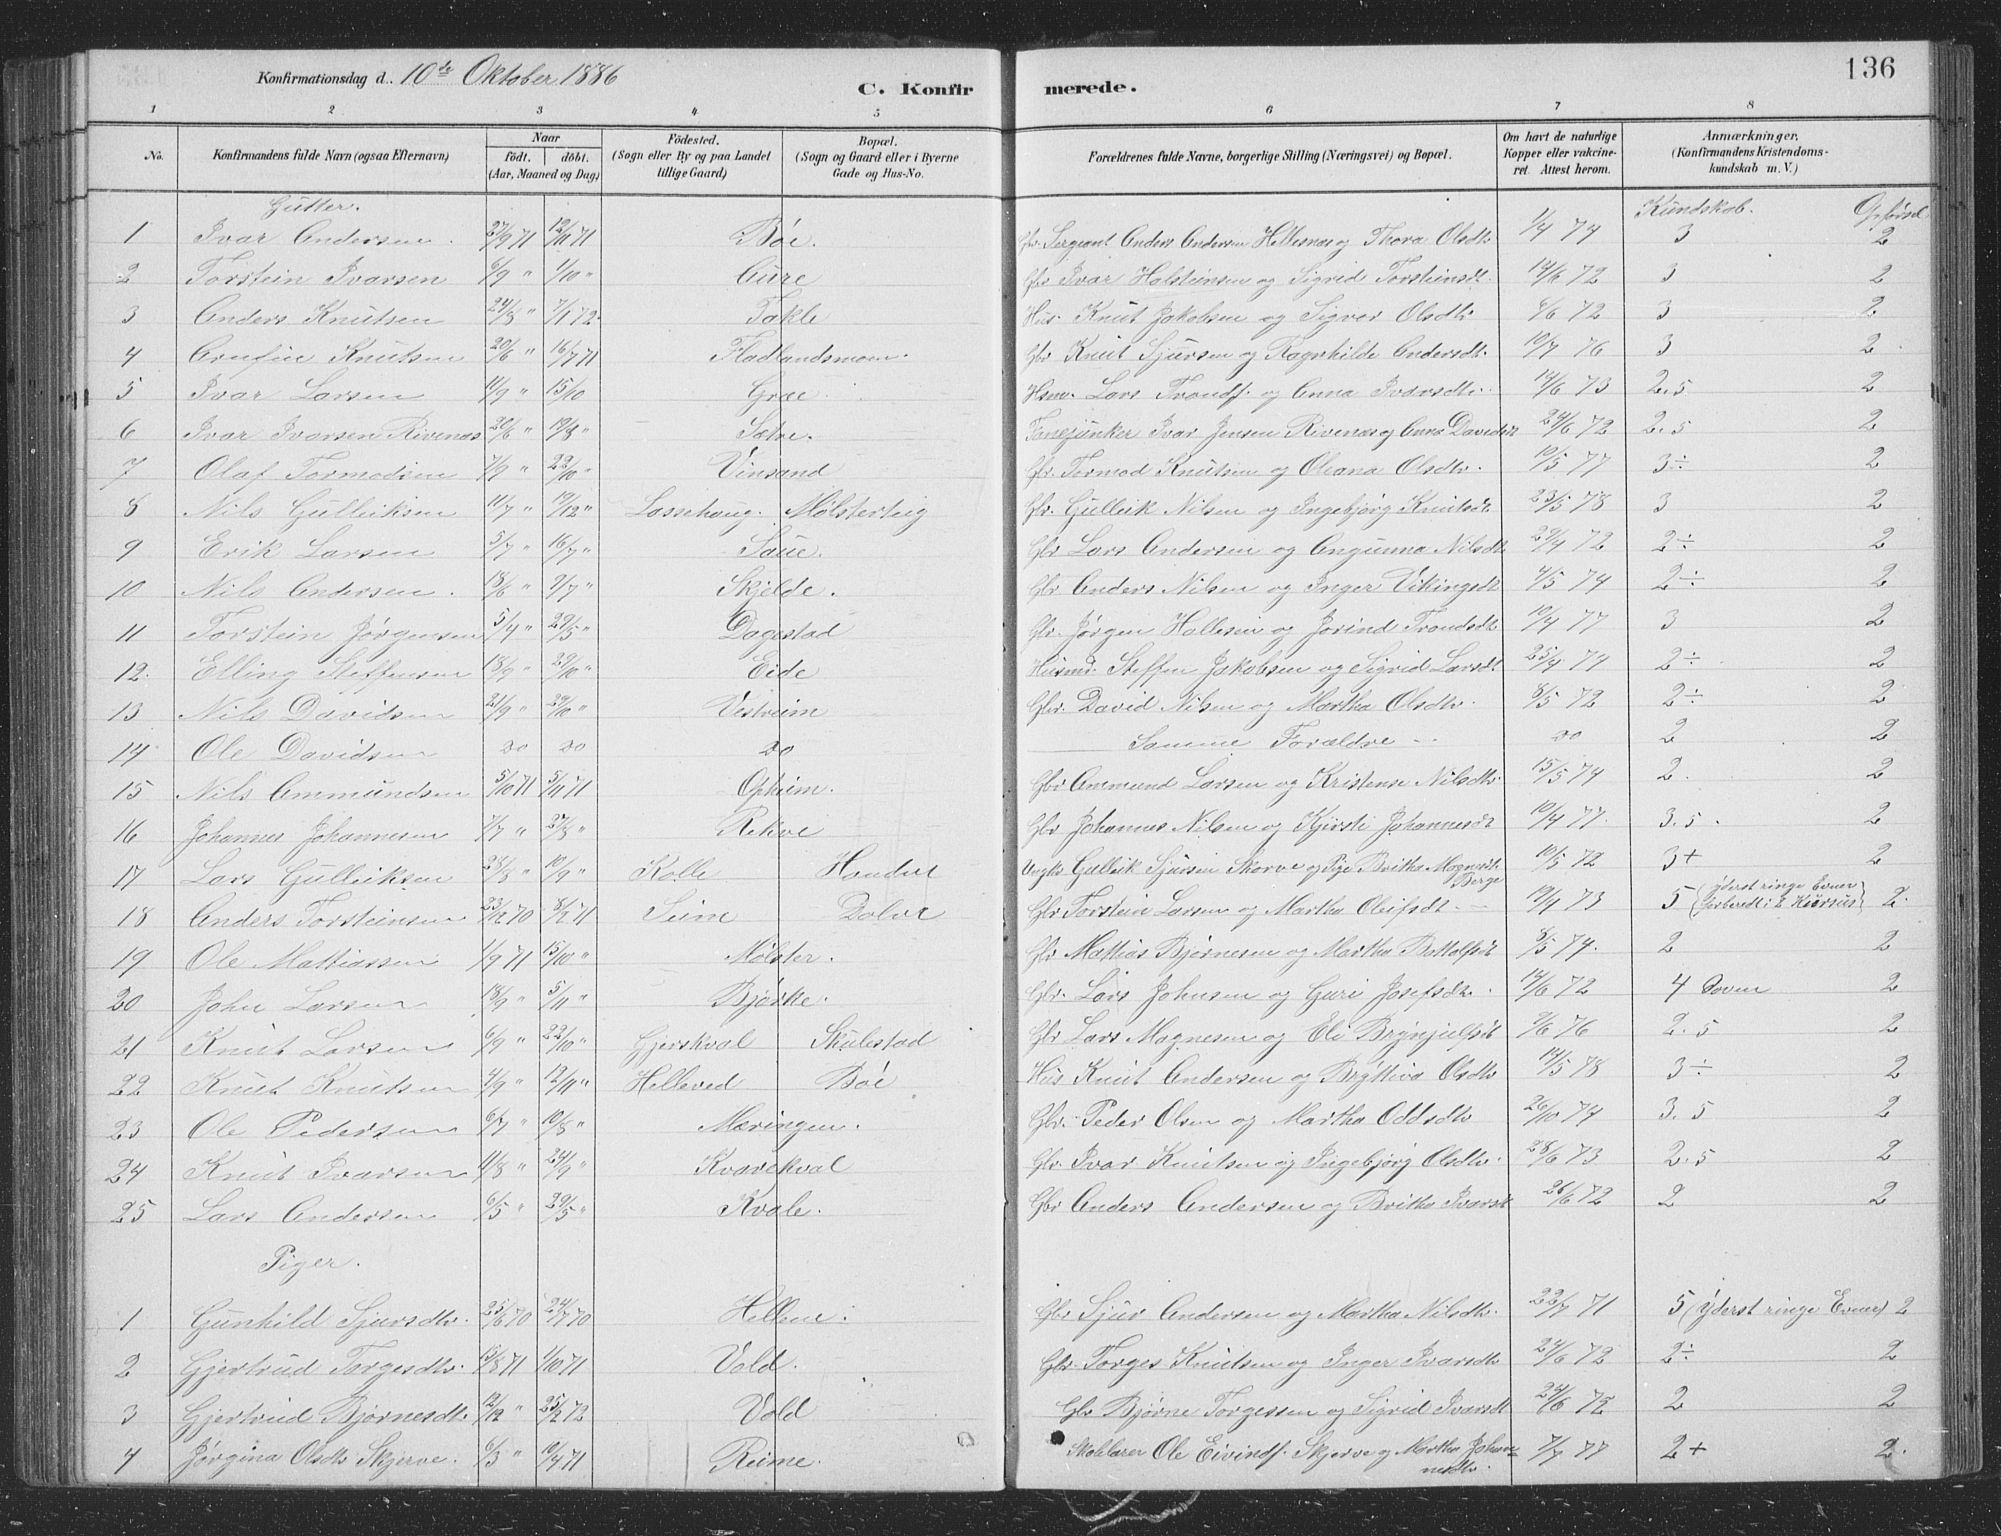 136
Konfirmationsdag d. 10de Oktober 1886
C. Konfirmerede.
1 2 3 4 5 6 7 8
No. Konfirmandens fulde Navn (ogsaa Efternavn) Naar födt. döbt. (Aar, Maaned og Dag) Födested. (Sogn eller By og paa Landet tillige Gaard) Bopæl. (Sogn og Gaard eller i Byerne Gade og Hus-No. Forældrenes fulde Navne, borgerlige Stilling (Næringsvei) og Bopæl. Om havt de naturlige Kopper eller vakcineret. Attest herom. Anmærkninger. (Konfirmandens Kristendomskundskab m. V.)
Gutter. Kundskab. Opførsel
1 Ivar Andersen. 27/9 71 12/11 71 Bøe. Gbr. Sergeant Anders Andersen Hellesnes og Thora Olsdtr 1/4 74 3 2
2 Torstein Ivarsen 6/9 " 1/10 " Gbr Ivar Holsteinsen og Sigrid Torsteinsdt. 14/6 72 3 2
3 Anders Knutsen 24/8 " 7/1 72 Takle Hus. Knut Jakobsen og Sigver Olsdtr 8/6 72 3 2
4 Knutsen 20/6 " 16/7 71 Fladlandsmoen. Gbr Knut Sjursen og Ragnhilde Andersdt. 10/7 76 3 2
5 Ivar Larsen 11/9 " 15/10 Græe. Hsm. Lars Trondf. og Anna Ivarsdtr. 14/6 73 2.5 2
6 Ivar Ivarsen Rivenes 20/6 " 19/8 " Sætre. Fanejunker Ivar Jensen Rivenes og Anna Davidsdt 24/6 72 2.5 2
7 Olaf Tormodsen 7/9 " 22/10 " Vinsand Gbr. Tormod Knutsen og Oleana Olsdtr. 10/5 77 3÷ 2
8 Nils Gulleiksen 11/7 " 19/12 " Lassehaug. Mølsterteig Gbr. Gulleik Nilsen og Ingebjørg Knutsdt. 23/5 78 3 2
9 Erik Larsen 5/7 " 16/7 " Saue. Gbr Lars Andersen og Angunna Nilsdt. 29/4 72 2÷ 2
10 Nils Andersen. 18/6 " 9/7 " Skjelde. Gbr. Anders Nilsen og Inger Vikingsdt 4/5 74 2÷ 2
11 Torstein Jørgensen 5/4 " 29/5 " Dagestad Gbr. Jørgen Hallesen og Jorind Trondsdt 10/4 77 3 2
12. Elling Steffensen 18/9 " 29/10 " Eide Husmd. Steffen Jakobsen og Sigrid Larsdt 25/4 74 2÷ 2
13 Nils Davidsen 21/9 " 29/10 " Vestreim Gbr. David Nilsen og Martha Olsdtr. 8/5 72 2÷ 2
14 Ole Davidsen do do do Samme Forældre do 2 2
15 Nils Ammundsen 5/10 71 5/11 71 Opheim. Gbr Ammund Larsen og Kristense Nilsdtr. 15/5 74 2. 2
16 Johannes Johannesen 7/7 " 27/8 " Rekve Gbr Johannes Nilsen og Kjersti Johannesdt 10/4 77. 3.5. 2
17 Lars Gulleiksen 28/8 " 10/9 " Kolle Ungk. Gulleik Sjursen Skorve og Pige Britha Magnesdt. Berge 10/5 72 3+ 2
18 Anders Torsteinsen 23/12 70 8/2 71 Seim Dolve Gbr Torstein Larsen og Martha Oleifsdt. 19/4 73 5 (Yderst ringe Evner forberedt i 2 Kursus) 2.
19 Ole Mattiassen 1/9 71 15/10 " Mølster. Gbr Mattias Bjørnesen og Martha Bottolfsdt 8/5 74. 2 2
20 John Larsen 18/9 " 5/11 " Bjørke. Gbr. Lars Johnsen og Guri Josefsdtr. 14/6 72 4 Doven 2
21 Knut Larsen 6/9 " 22/10 " Gjerskval Skulestad Gbr Lars Magnesen og Eli Brynjulfsdt 9/6 76 2.5 2
22 Knut Knutsen 4/9 " 12/11 " Helleved Bøe Hus Knut Andersen og Bryttiva Olsdtr 14/5 78 3÷ 2
23 Ole Pedersen 6/7 " 10/8 " Mæringen. Gbr. Peder Olsen og Martha Oddsdtr 26/10 74 3.5 2
24 Knut Ivarsen 11/8 " 24/9 " Kvarekval Gbr. Ivar Knutsen og Ingebjørg Olsdtr. 28/6 73 2.5 2
25 Lars Andersen 6/5 " 29/5 " Kvale. Gbr Anders Andersen og Britha Ivarsdt 26/6 72 2 2
Piger.
1 Gunhild Sjursdtr. 25/6 70 24/7 70 Hellene. Gbr Sjur Andersen og Martha Nilsdtr. 22/7 71 5 (Yderst ringe Evner) 2
2 Gjertrud Torgesdtr. 15/8 71 1/10 71 Vold. Gbr. Torges Knutsen og Inger Ivarsdtr 24/6 72 2÷ 2
3 Gjertrud Bjørnesdt. 12/12 " 25/2 72 Vold Gbr Bjørne Torgessen og Sigrid Ivarsdt 24/6 72 2 2
4 Jørgina Olsdtr Skjerve. 6/3 " 10/4 71 Reime. Skolelærer Ole Eivindf. Skjerve og Martha Johannesdtr. 7/7 77 2+ 2.